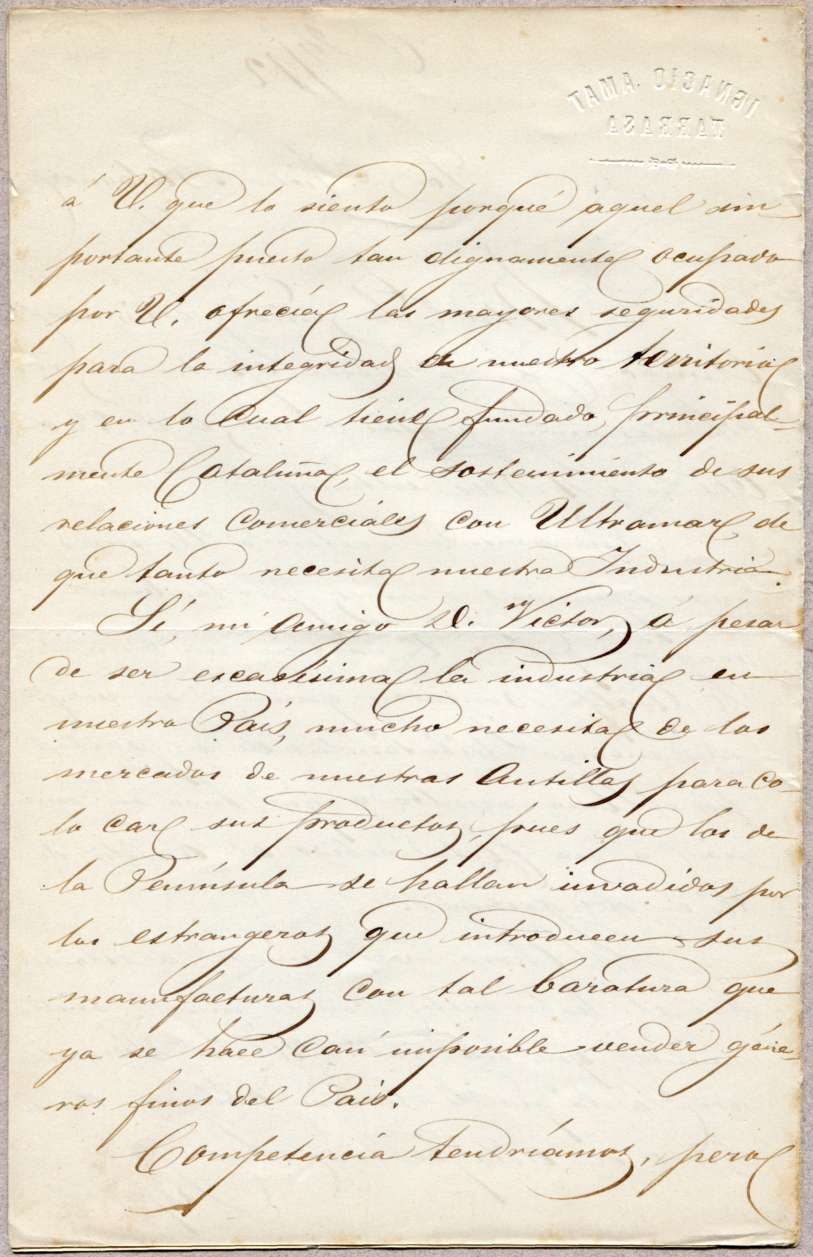 IGNACIO AMAT
TARRASA
á V. que lo siento porqué aquel im-
portante puesto tan dignamente ocupado
por V. ofrecía las mayores seguridades
para la integridad de nuestro territorio
y en lo cual tiene fundado, principal-
mente Cataluña, el sostenimiento de sus
relaciones comerciales con Ultramar, de
que tanto necesita nuestra Industria.
Sí, mi amigo D. Victor, á pesar
de ser escasísima la industria en
nuestro País, mucho necesita de los
mercados de nuestras Antillas para co-
locar sus productos, pues que los de
la Península se hallan invadidos por
los estrangeros que introducen sus
manufacturas con tal baratura que
ya se hace casi imposible vender géne-
ros finos del País.
Competencia tendríamos, pero